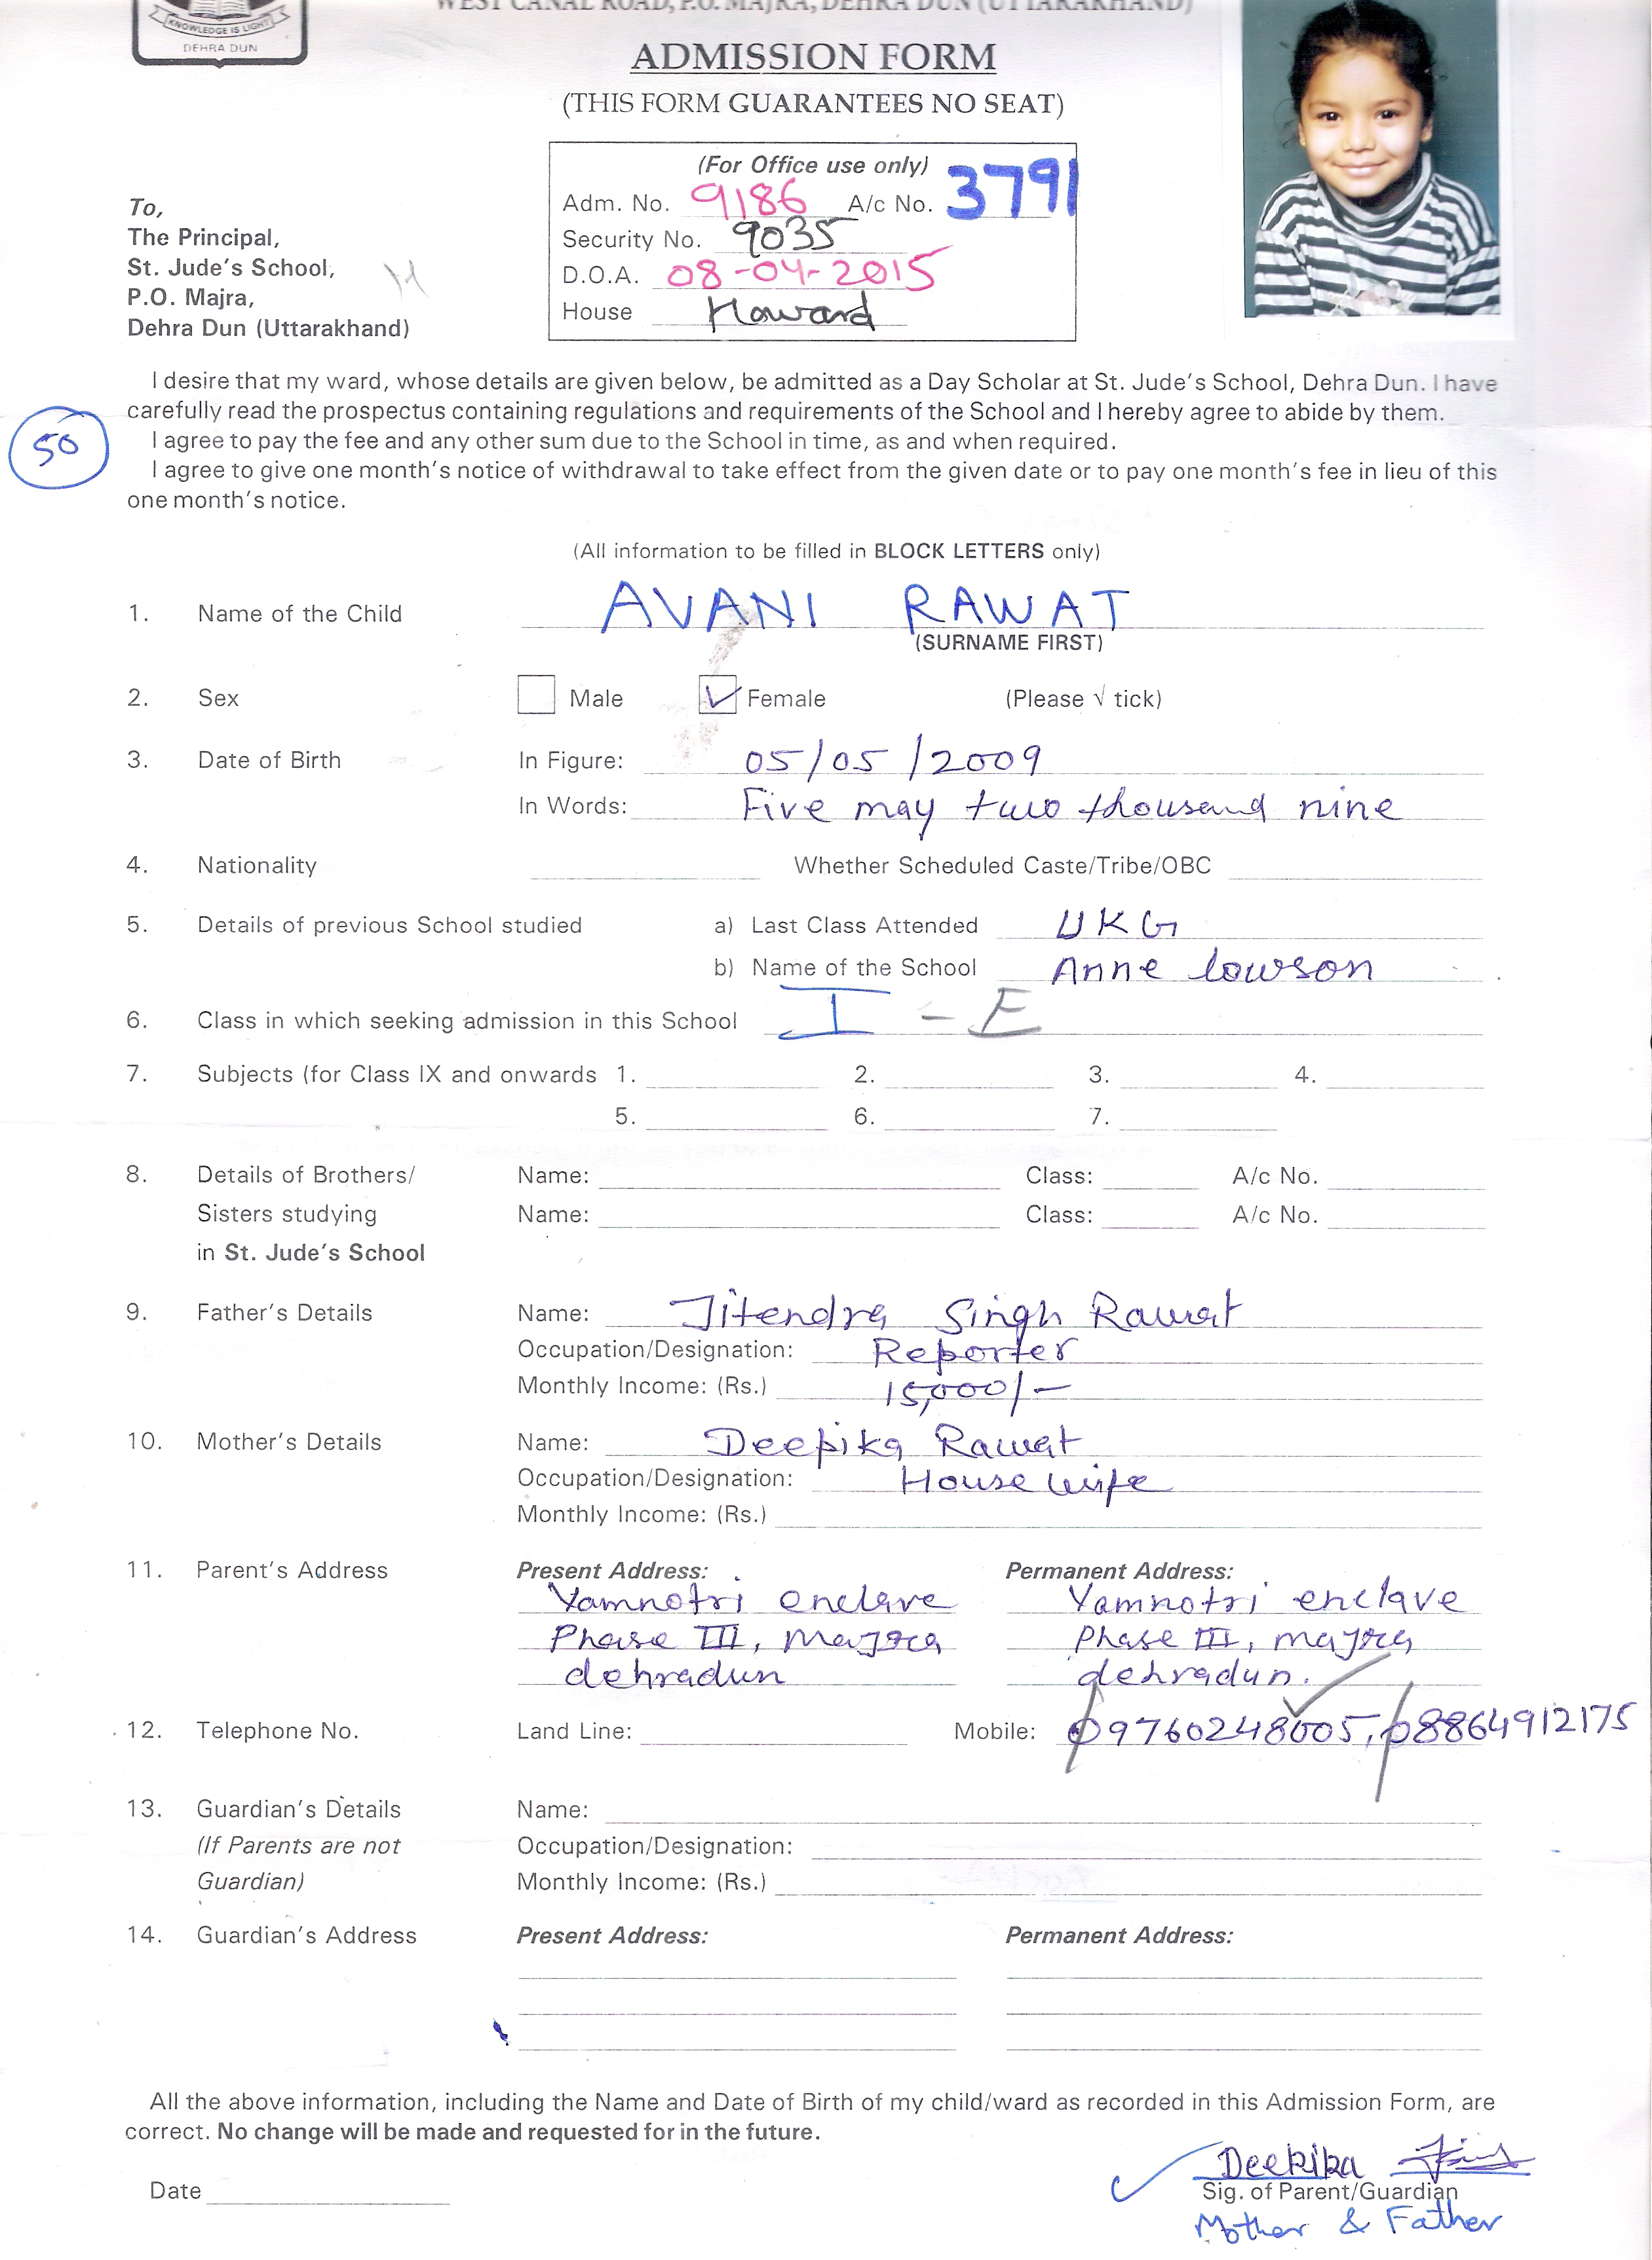 KNOWLEDGE IS LIGHT
DEHRA DUN
WEST CANAL ROAD, P.O. MAJRA, DEHRA DUN (UTTARAKHAND)
ADMISSION FORM
(THIS FORM GUARANTEES NO SEAT)
(For Office use only)
Adm. No. 9186 A/c No. 3791
Security No. 9035
D.O.A. 08-04-2015
House Howard
To,
The Principal,
St. Jude's School,
P.O. Majra,
Dehra Dun (Uttarakhand)
I desire that my ward, whose details are given below, be admitted as a Day Scholar at St. Jude's School, Dehra Dun. I have
carefully read the prospectus containing regulations and requirements of the School and I hereby agree to abide by them.
50
I agree to pay the fee and any other sum due to the School in time, as and when required.
I agree to give one month's notice of withdrawal to take effect from the given date or to pay one month's fee in lieu of this
one month's notice.
(All information to be filled in BLOCK LETTERS only)
1. Name of the Child AVANI RAWAT
(SURNAME FIRST)
2. Sex Male Female (Please √ tick)
3. Date of Birth In Figure: 05/05/2009
In Words: Five may two thousand nine
4. Nationality Whether Scheduled Caste/Tribe/OBC
5. Details of previous School studied a) Last Class Attended UKG
b) Name of the School Anne lowson
6. Class in which seeking admission in this School I - E
7. Subjects (for Class IX and onwards 1. 2. 3. 4.
5. 6. 7.
8. Details of Brothers/ Name: Class: A/c No.
Sisters studying Name: Class: A/c No.
in St. Jude's School
9. Father's Details Name: Jitendra Singh Rawat
Occupation/Designation: Reporter
Monthly Income: (Rs.) 15,000/-
10. Mother's Details Name: Deepika Rawat
Occupation/Designation: House wife
Monthly Income: (Rs.)
11. Parent's Address Present Address: Permanent Address:
Yamnotri enclave Yamnotri enclave
Phase III, Majra Phase III, majra
dehradun dehradun.
12. Telephone No. Land Line: Mobile: 09760248005, 08864912175
13. Guardian's Details Name:
(If Parents are not Occupation/Designation:
Guardian) Monthly Income: (Rs.)
14. Guardian's Address Present Address: Permanent Address:
All the above information, including the Name and Date of Birth of my child/ward as recorded in this Admission Form, are
correct. No change will be made and requested for in the future.
Deepika
Date Sig. of Parent/Guardian
Mother & Father